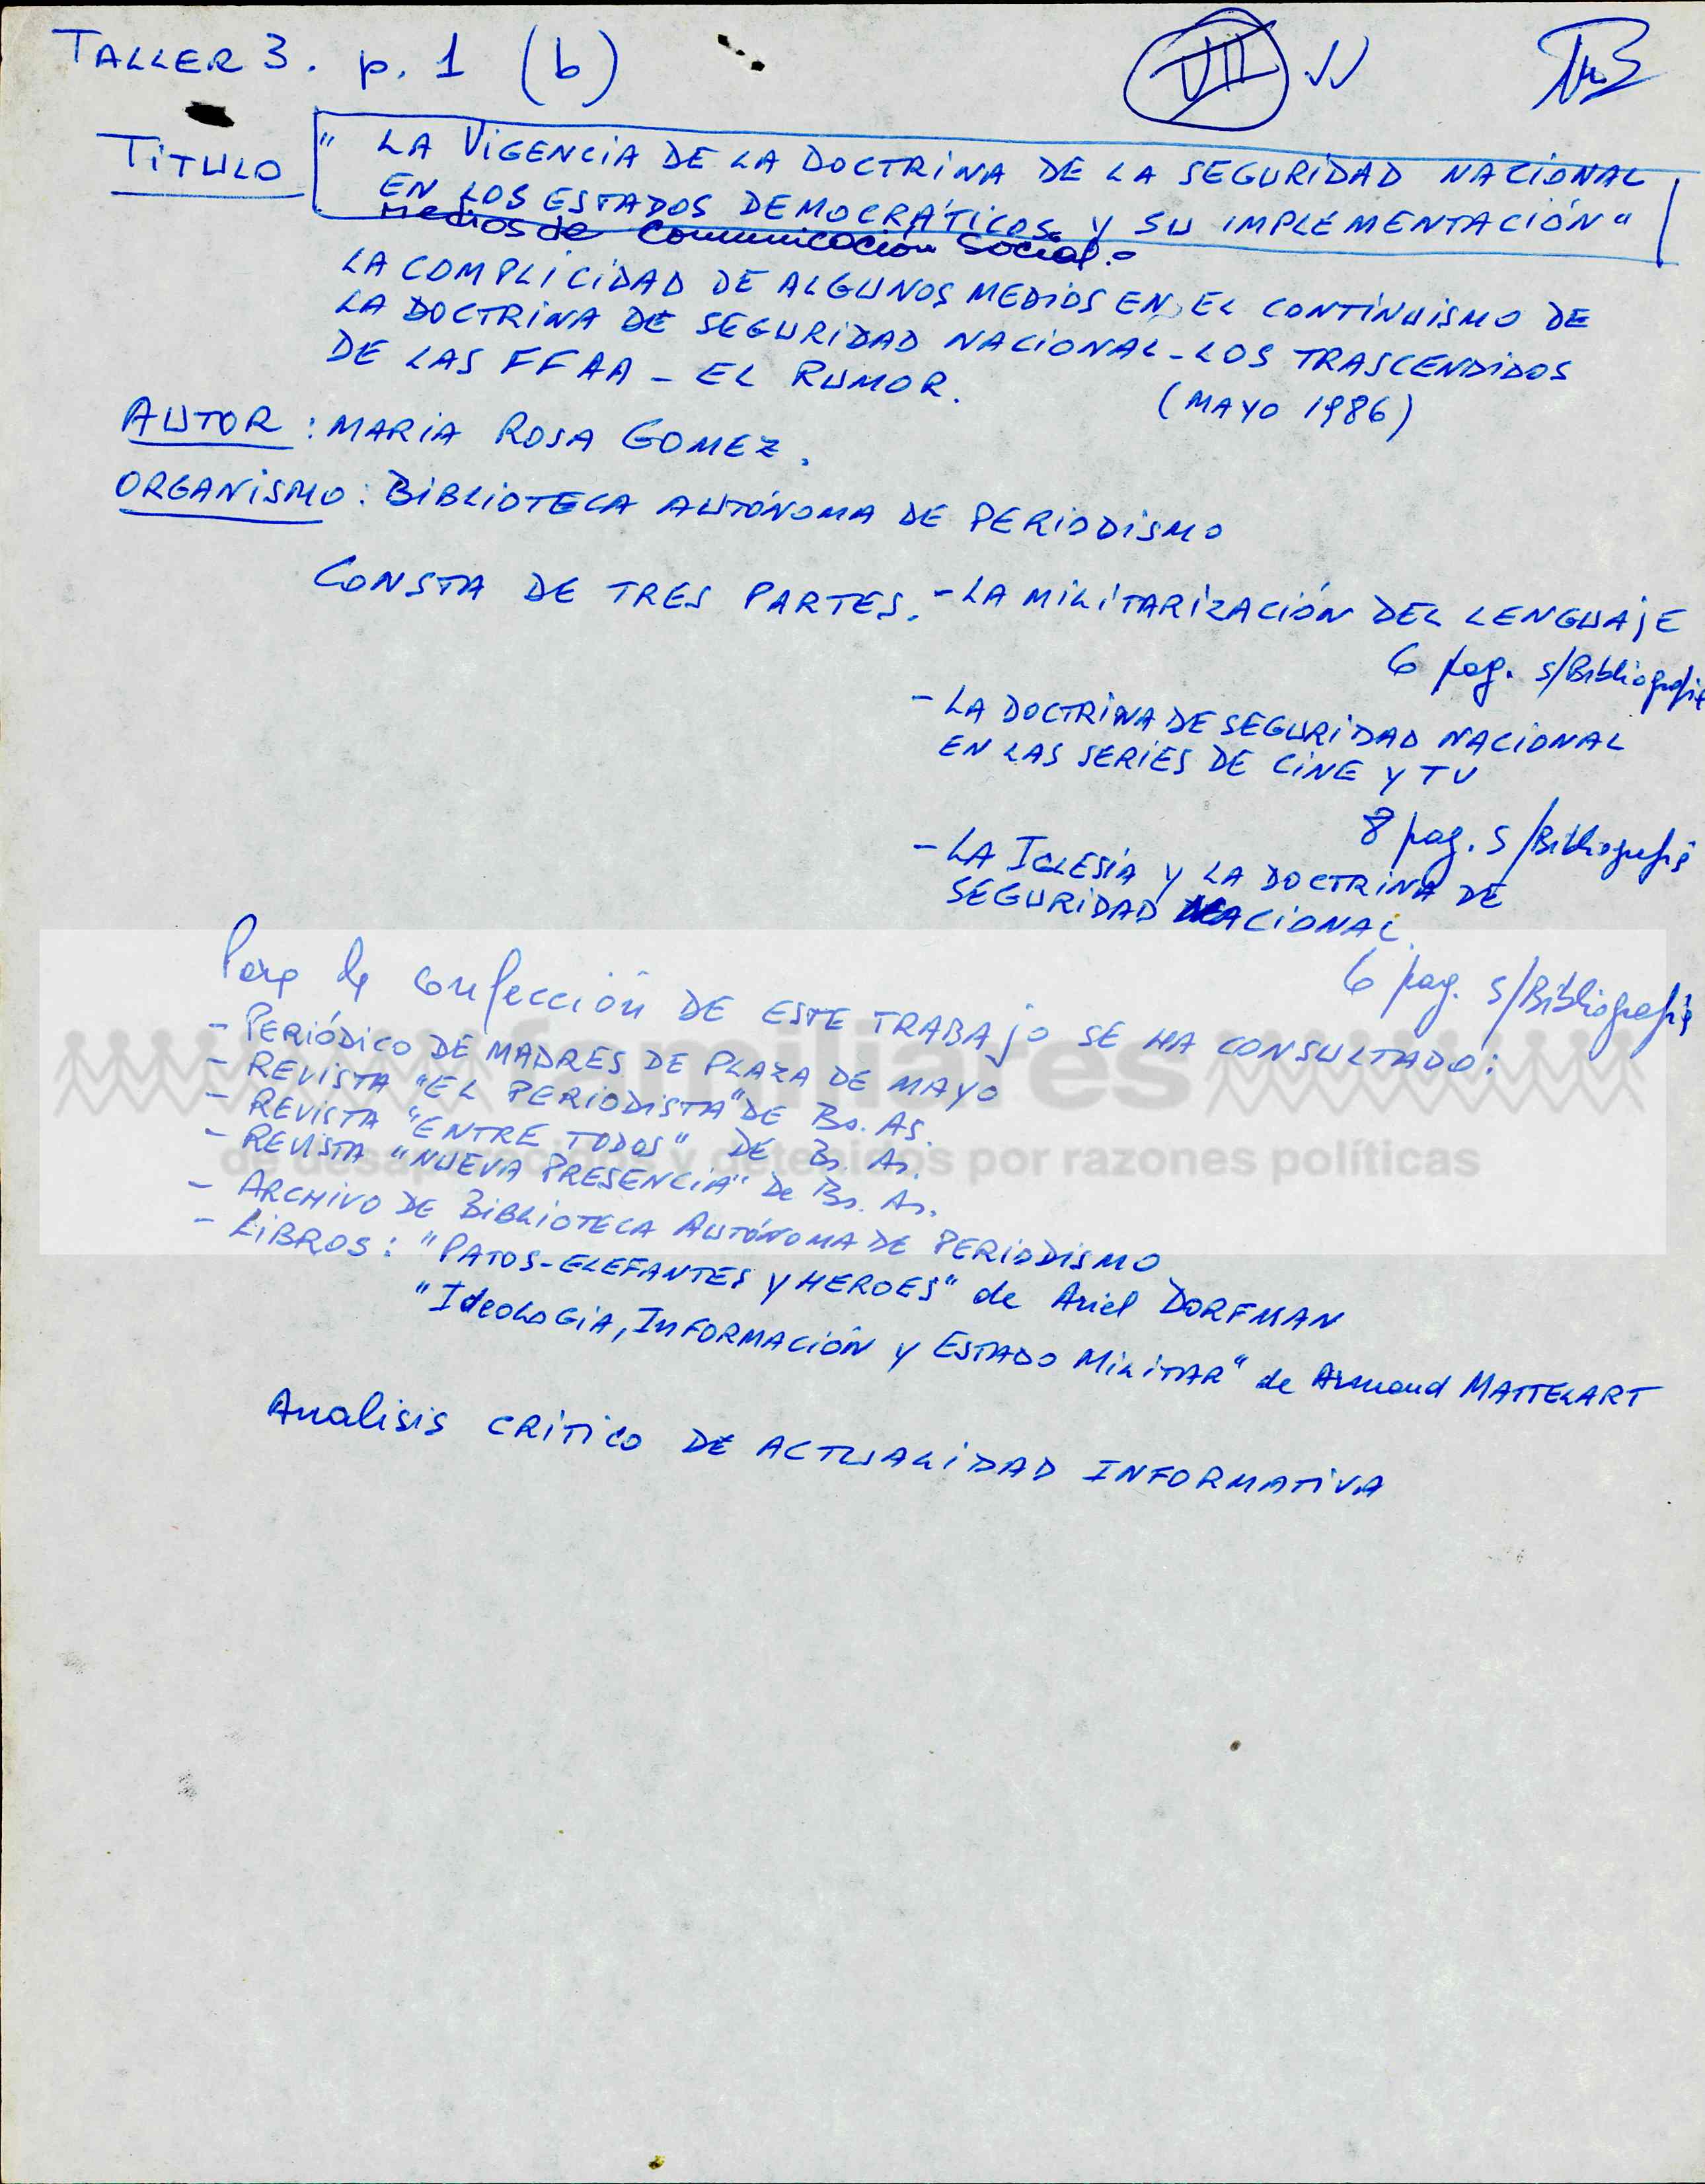 TALLER 3. p. 1 (b) VII
TÍTULO " LA VIGENCIA DE LA DOCTRINA DE LA SEGURIDAD NACIONAL
EN LOS ESTADOS DEMOCRÁTICOS Y SU IMPLEMENTACIÓN"
Medios de Comunicación Social.-
LA COMPLICIDAD DE ALGUNOS MEDIOS EN EL CONTINUISMO DE
LA DOCTRINA DE SEGURIDAD NACIONAL - LOS TRASCENDIDOS
DE LAS FFAA - EL RUMOR.
(MAYO 1986)
AUTOR : MARIA ROSA GOMEZ.
ORGANISMO : BIBLIOTECA AUTÓNOMA DE PERIODISMO
CONSTA DE TRES PARTES. - LA MILITARIZACIÓN DEL LENGUAJE
6 pag. s/Bibliografía
- LA DOCTRINA DE SEGURIDAD NACIONAL
EN LAS SERIES DE CINE Y TV
8 pag. s/Bibliografía
- LA IGLESIA Y LA DOCTRINA DE
SEGURIDAD NACIONAL.
6 pag. s/Bibliografía
Para la confección DE ESTE TRABAJO SE HA CONSULTADO :
- PERIÓDICO DE MADRES DE PLAZA DE MAYO
- REVISTA "EL PERIODISTA" DE Bs. AS.
- REVISTA "ENTRE TODOS" DE Bs. As.
- REVISTA "NUEVA PRESENCIA" De Bs. As.
- ARCHIVO DE BIBLIOTECA AUTÓNOMA DE PERIODISMO
- LIBROS : "PATOS-ELEFANTES Y HEROES" de Ariel DORFMAN
"IdeoLoGIA, INFORMACIÓN Y ESTADO MILITAR" de Armand MATTELART
Analisis CRÍTICO DE ACTUALIDAD INFORMATIVA
familiares
de desaparecidos y detenidos por razones políticas